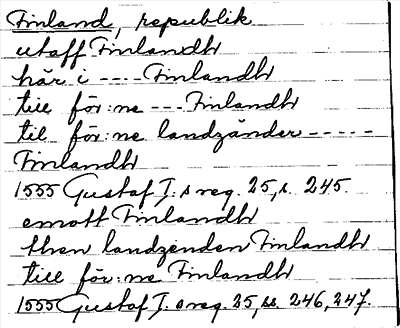 Finland, republik
utaff Finlandh
här i ---- Finlandh
till för:ne --- Finlandh
til för:ne landzänder -----
Finlandh
1555 Gustaf I:s reg. 25, s. 245.
emott Finlandh
then landzenden Finlandh
till för:ne Finlandh
1555 Gustaf I:s reg. 25, ss. 246, 247.